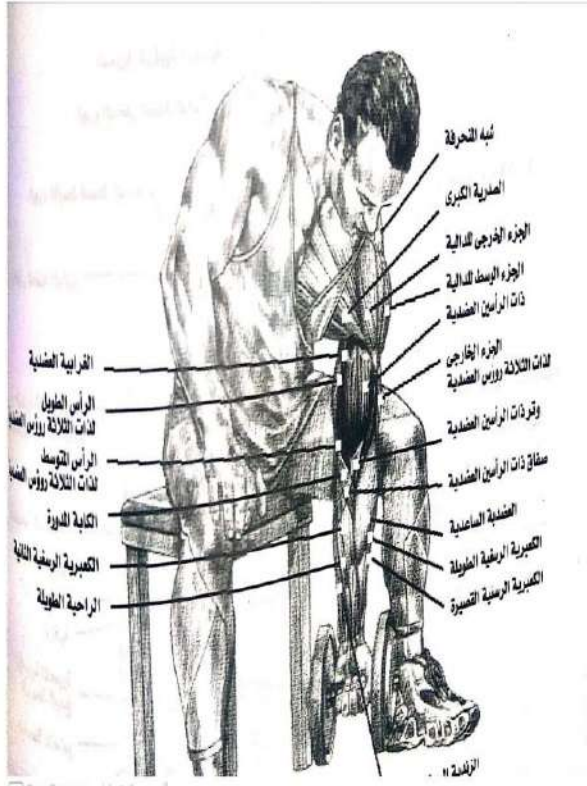 شبه المنحرفة
الصدرية الكبرى
الجزء الخرجى للدالية
الجزء الوسط للدالية
ذات الرأسين العضدية
الجزء الخارجى
لذات الثلاثة رووس العضدية
وقر ذات الرأسين العضدية
صفاق ذات الرأسين العضدية
العضدية الساعدية
الكعبرية الرسغية الطويلة
الكعبرية الرسغية القصيرة
الغرابية العضدية
الرأس الطويل
لذات الثلاثة رؤس
الرأس المتوسط
لذات الثلاثة رؤس
الكابة المدورة
الكعبرية الرسغية الثانية
الراحية الطويلة
الزندية